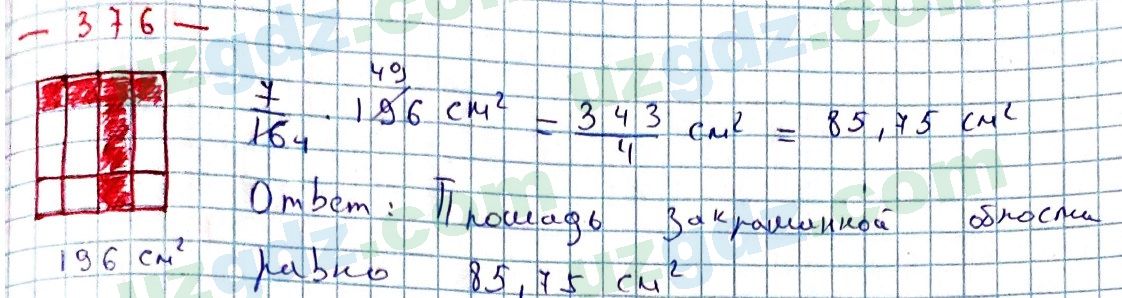 — 376 —
7/16 4 · 196 49 см² = 343/4 см² = 85,75 см²
Ответ: Площадь закрашанной области
196 см² равно 85,75 см²
uzgdz.com